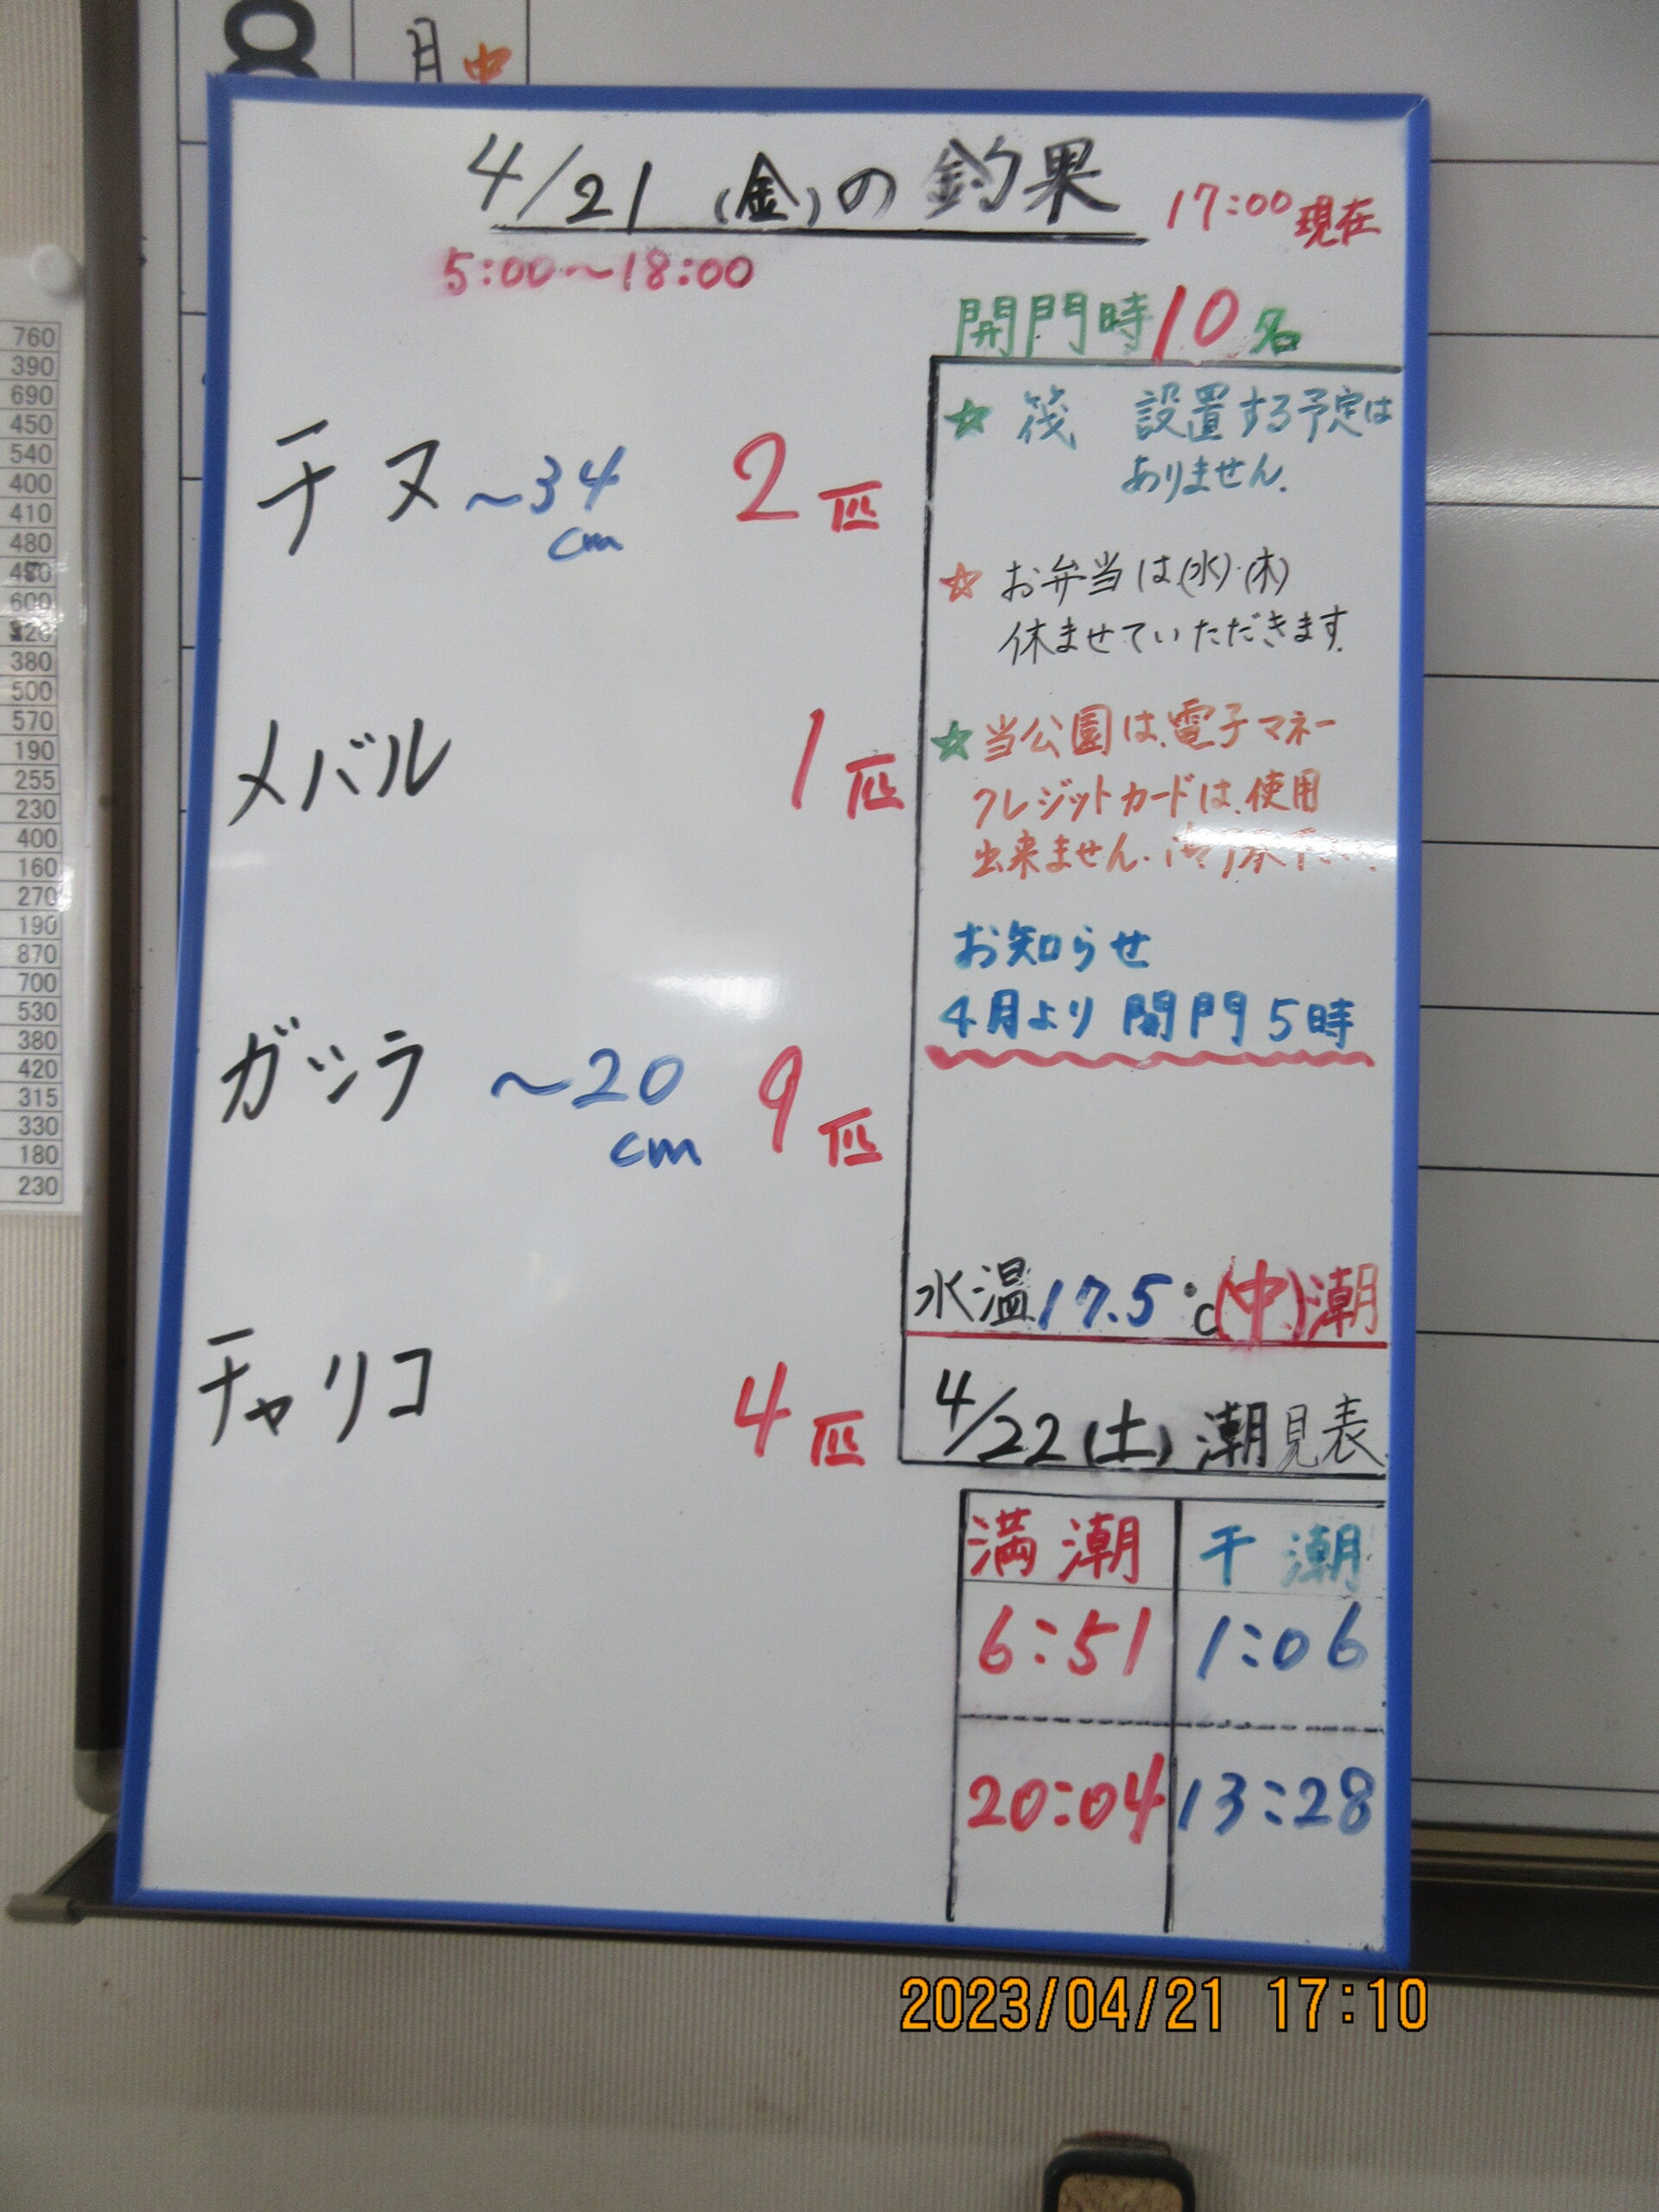 8 月 中
4/21 (金)の釣果 17:00現在
5:00～18:00
開門時10名
チヌ ～34cm 2匹
メバル 1匹
ガシラ ～20cm 9匹
チャリコ 4匹
☆ 筏 設置する予定は
ありません.
☆ お弁当は(水)・(木)
休ませていただきます.
☆当公園は、電子マネー
クレジットカードは、使用
出来ません.
お知らせ
4月より 開門 5時
水温17.5℃(中)潮
4/22(土)潮見表
満潮 干潮
6:51 1:06
20:04 13:28
760
390
690
450
540
400
410
480
600
380
500
570
190
255
230
400
160
270
190
870
700
530
380
420
315
330
180
230
2023/04/21 17:10